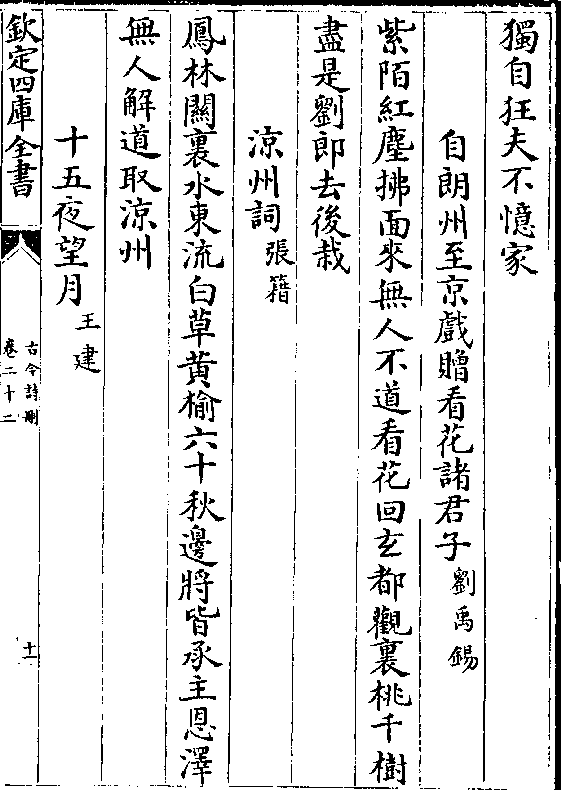 獨自狂夫不憶家
自朗州至京戲贈看花諸君子 劉禹錫
紫陌紅塵拂面來無人不道看花回玄都觀裏桃千樹
盡是劉郎去後栽
涼州詞 張籍
鳳林關裏水東流白草黄榆六十秋邊將皆承主恩澤
無人解道取涼州
十五夜望月 王建
欽定四庫全書
古今詩刪
卷二十二
十一